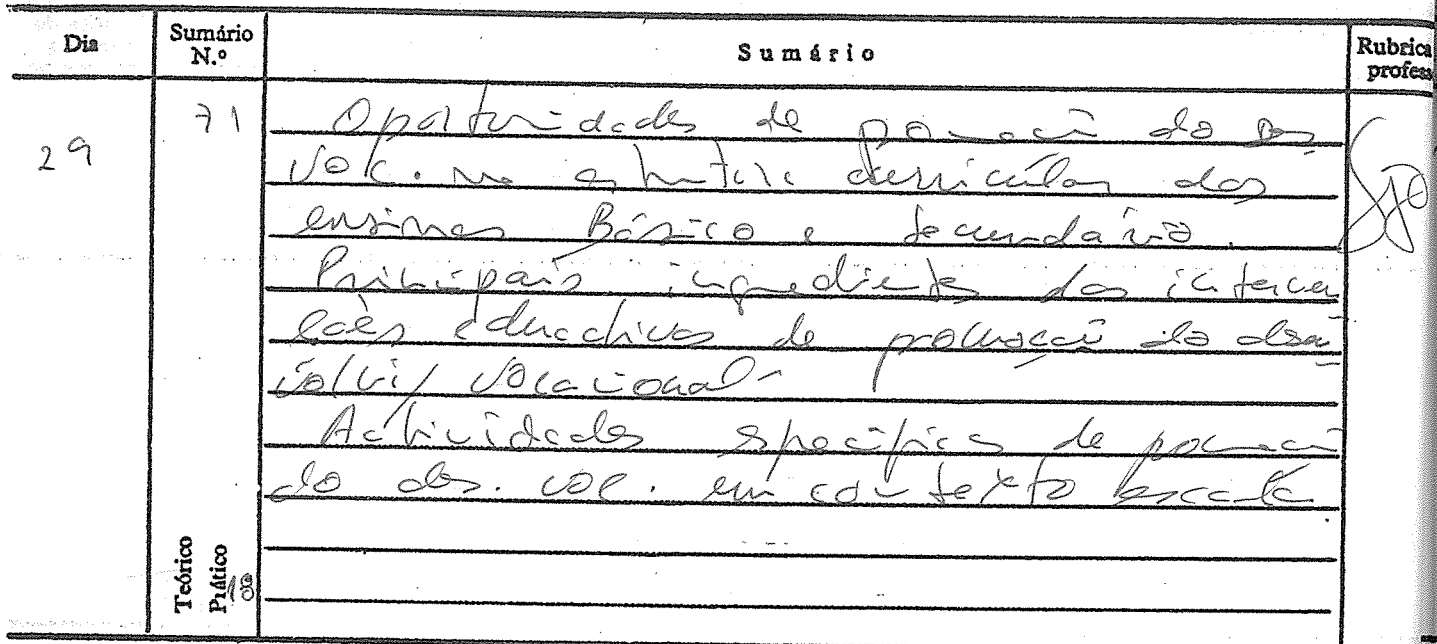 Dia Sumário N.º Sumário Rubrica profess
29 71 Oportunidades de promoção do des
voc. na estrutura curricular dos
ensinos Básico e secundário.
Principais ingredientes das interven
ções educativas de promoção do desen
volvi/ vocacional.
Actividades específicas de promoção
do des. voc. em contexto escolar
Teórico
Prático 18